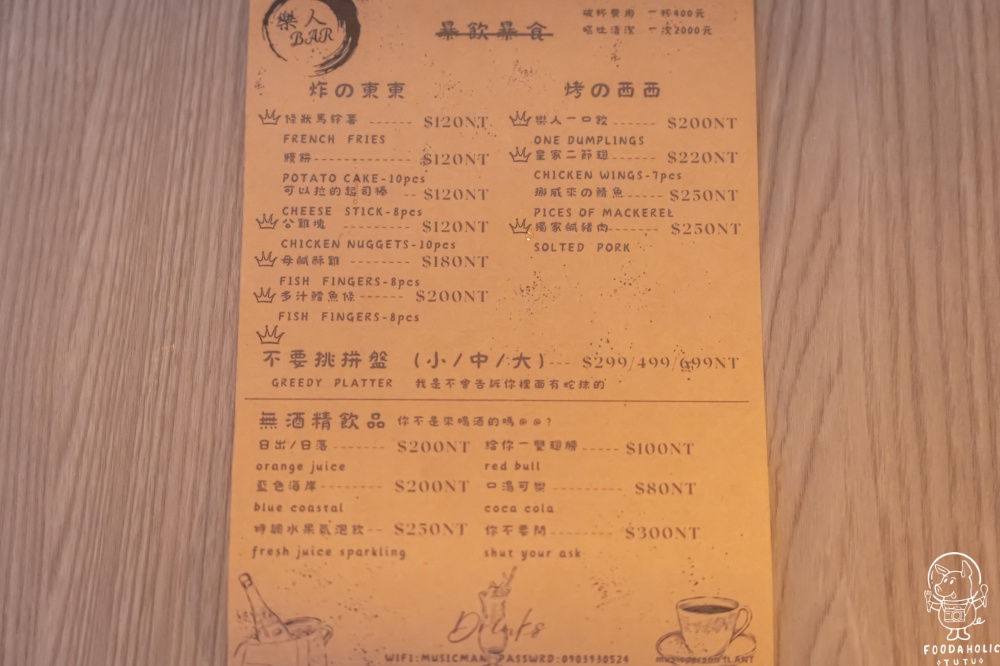 樂人
BAR
暴飲暴食
破杯費用 一杯400元
嘔吐清潔 一次2000元
炸の東東
條狀馬鈴薯 ------ $120NT
FRENCH FRIES
薯餅 ------ $120NT
POTATO CAKE-10pcs
可以拉的起司棒 -- $120NT
CHEESE STICK-8pcs
公雞塊 ------ $120NT
CHICKEN NUGGETS-10pcs
母鹹酥雞 ------ $180NT
FISH FINGERS-8pcs
多汁鱈魚條 ------ $200NT
FISH FINGERS-8pcs
烤の西西
樂人一口餃 ------ $200NT
ONE DUMPLINGS
皇家二節翅 ------ $220NT
CHICKEN WINGS-7pcs
挪威來の鯖魚 ----- $250NT
PICES OF MACKEREL
獨家鹹豬肉 ------ $250NT
SOLTED PORK
不要挑拼盤 (小/中/大)--- $299/499/699NT
GREEDY PLATTER 我是不會告訴你裡面有蛇抹的
無酒精飲品 你不是來喝酒的嗎@@?
日出/日落 ------- $200NT
orange juice
藍色海岸 -------- $200NT
blue coastal
特調水果氣泡飲 -- $250NT
fresh juice sparkling
給你一雙翅膀 ----- $100NT
red bull
口渴可樂 -------- $80NT
coca cola
你不要問 -------- $300NT
shut your ask
Drinks
WIFI:MUSICMAN PASSWRD:0903930524
FOODAHOLIC
TUTUO